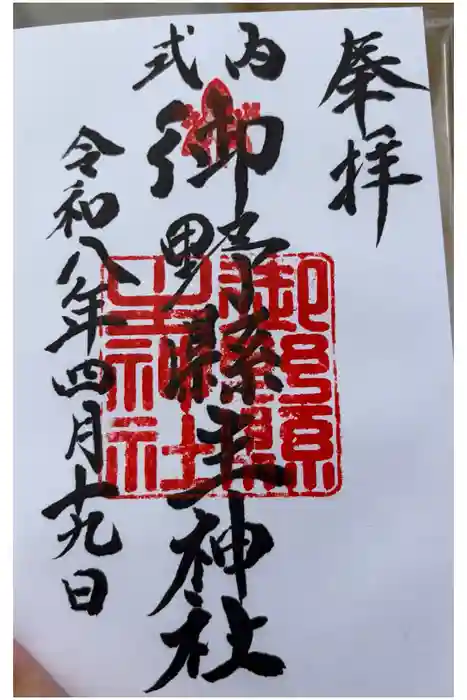 奉拝
式内
御野縣主神社
御野縣主神社
令和八年四月十九日